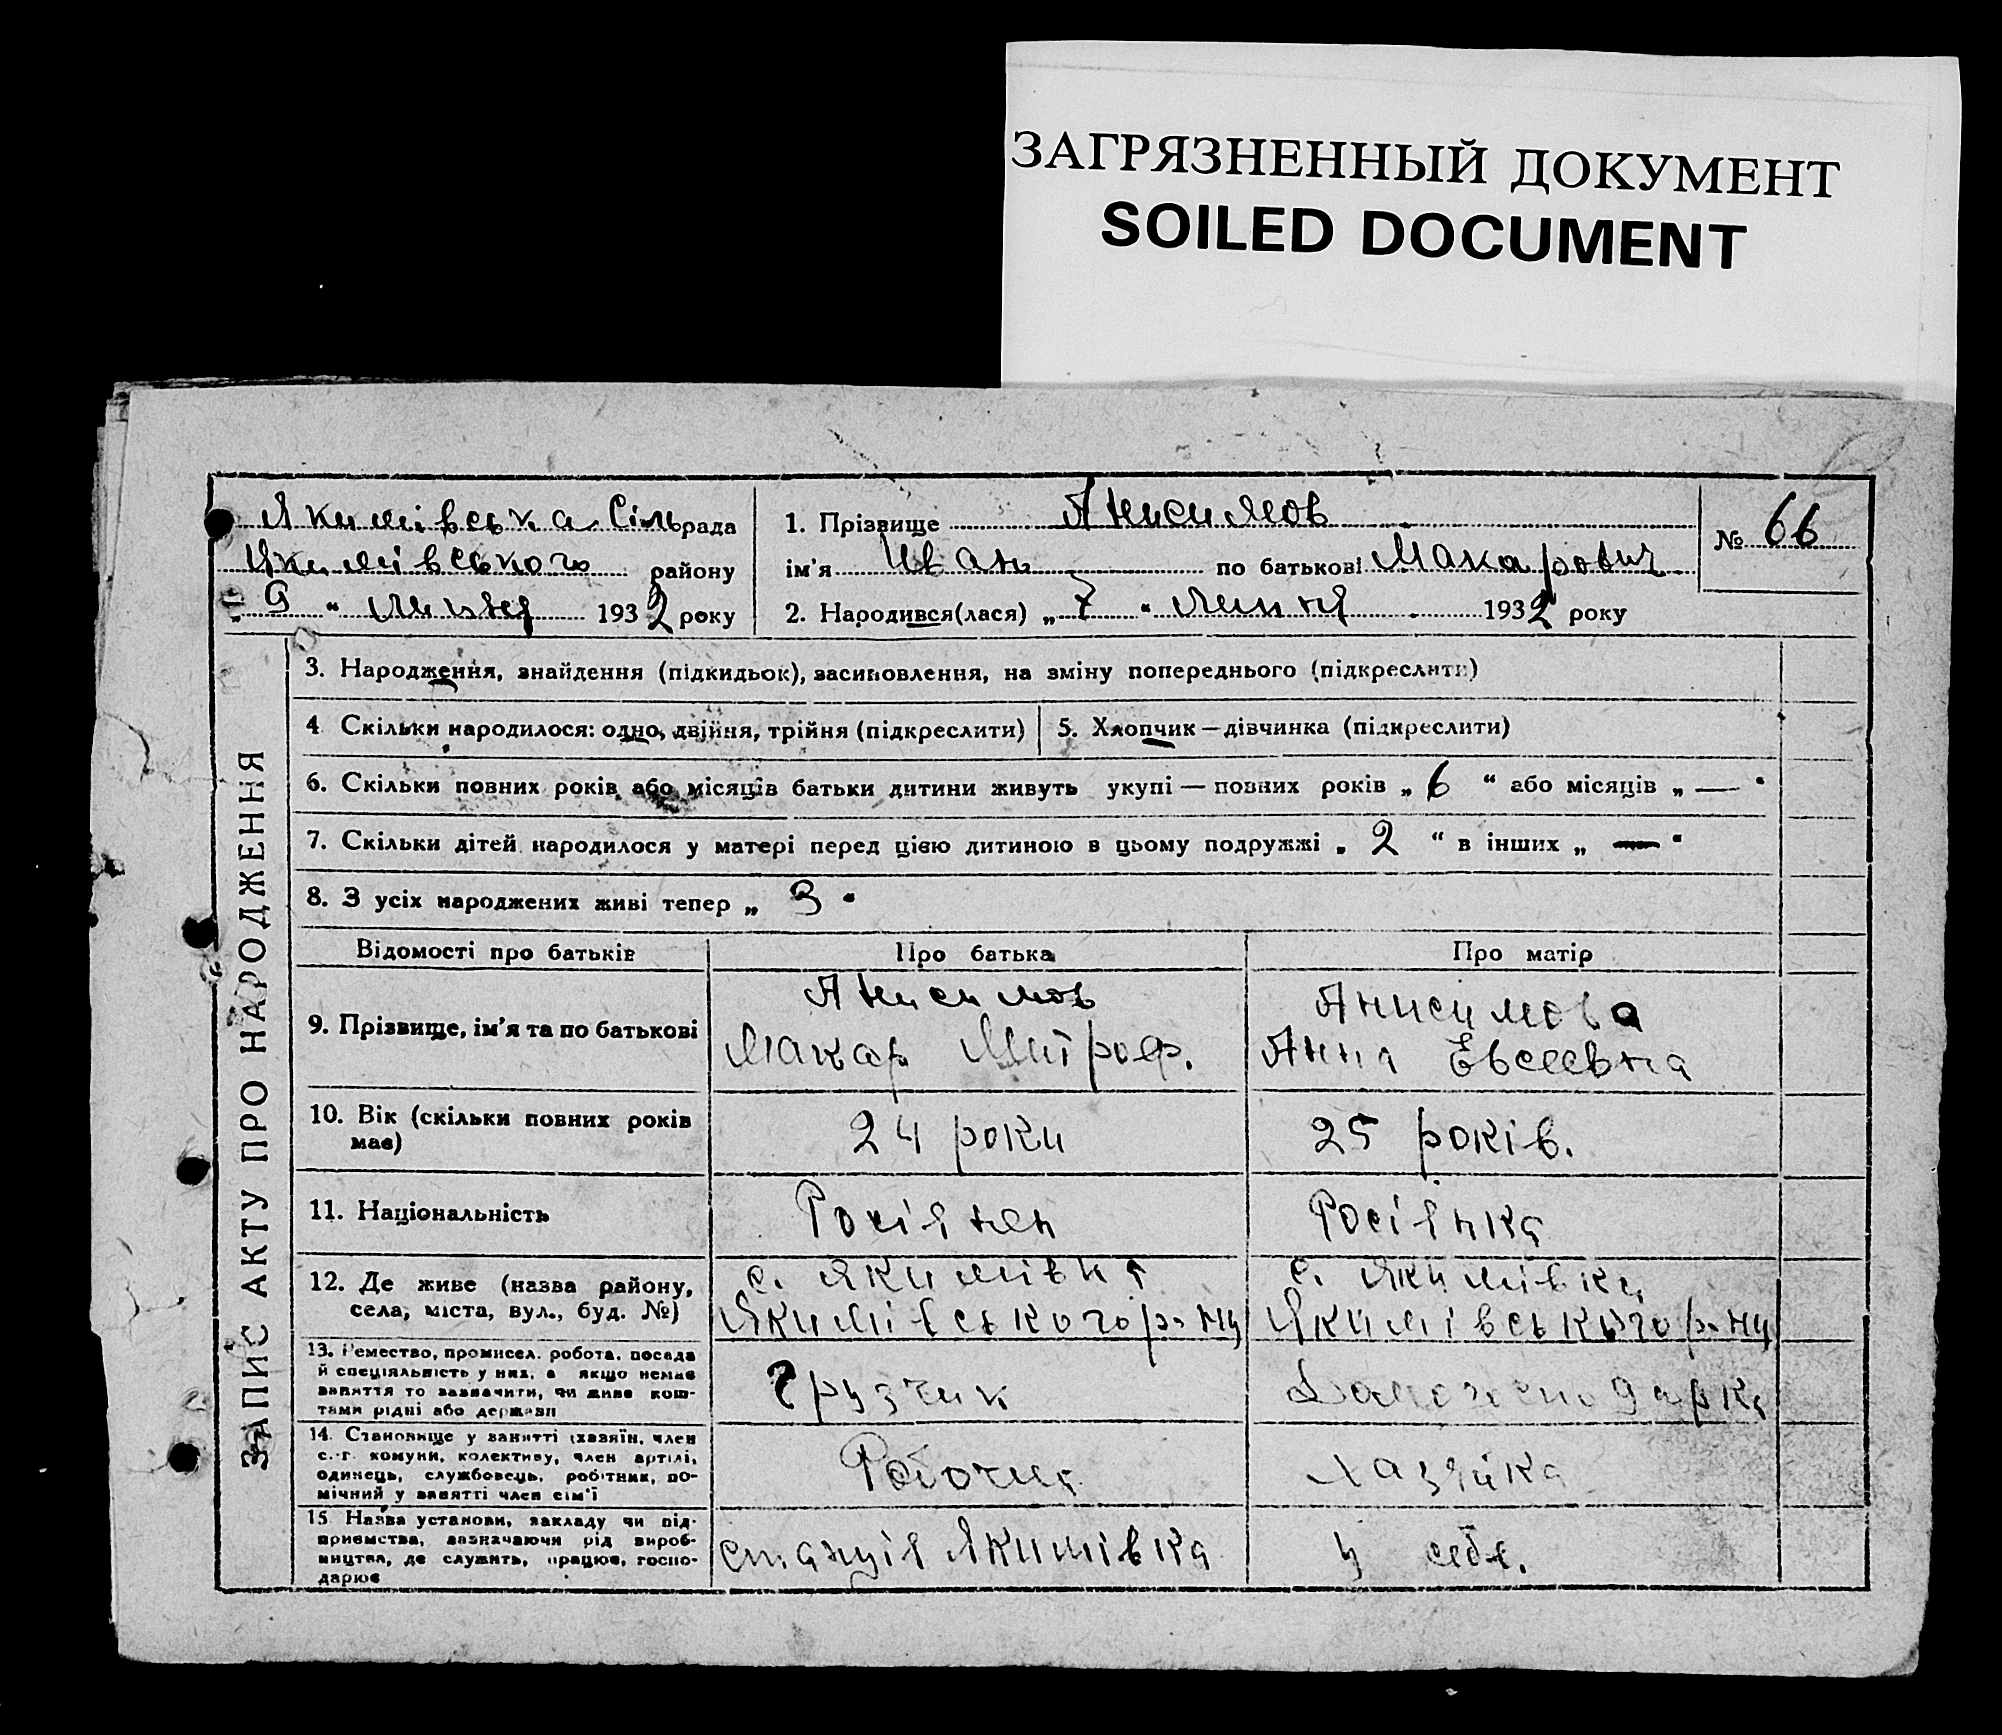 ЗАГРЯЗНЕННЫЙ ДОКУМЕНТ
SOILED DOCUMENT
Якимівська Сільрада
Якимівського району
„ 9 “ Липня 1932 року
1. Прізвище Анисимов
ім'я Иван по батькові Макарович
2. Народився(лася) „ 7 “ Липня 1932 року
№ 66
ЗАПИС АКТУ ПРО НАРОДЖЕННЯ
3. Народження, знайдення (підкидьок), засиновлення, на зміну попереднього (підкреслити)
4. Скільки народилося: одно, двійня, трійня (підкреслити)
5. Хлопчик — дівчинка (підкреслити)
6. Скільки повних років або місяців батьки дитини живуть укупі — повних років „ 6 “ або місяців „ — “
7. Скільки дітей народилося у матері перед цією дитиною в цьому подружжі „ 2 “ в інших „ — “
8. З усіх народжених живі тепер „ 3 “
Відомості про батьків
Про батька
Про матір
9. Прізвище, ім'я та по батькові
Анисимов
Макар Митроф.
Анисимова
Анна Евсеевна
10. Вік (скільки повних років
має)
24 роки
25 років.
11. Національність
Росіянен
Росіянка
12. Де живе (назва району,
села, міста, вул., буд. №)
с. Якимівка
Якимівського р-ну
с. Якимівка
Якимівського р-ну
13. Ремество, промисел, робота, посада
й спеціяльність у них, а якщо немає
заняття то зазначити, чи живе кош-
тами рідні або держави
Грузчик
Домогосподарка
14. Становище у занятті (хазяїн, член
с.-г. комуни, колективу, член артілі,
одинець, службовець, робітник, по-
мічний у занятті член сім'ї
Рабочий
хазяйка
15. Назва установи, закладу чи під-
приємства, зазначаючи рід вироб-
ництва, де служить, працює, госпо-
дарює
станція Якимівка
у себе.